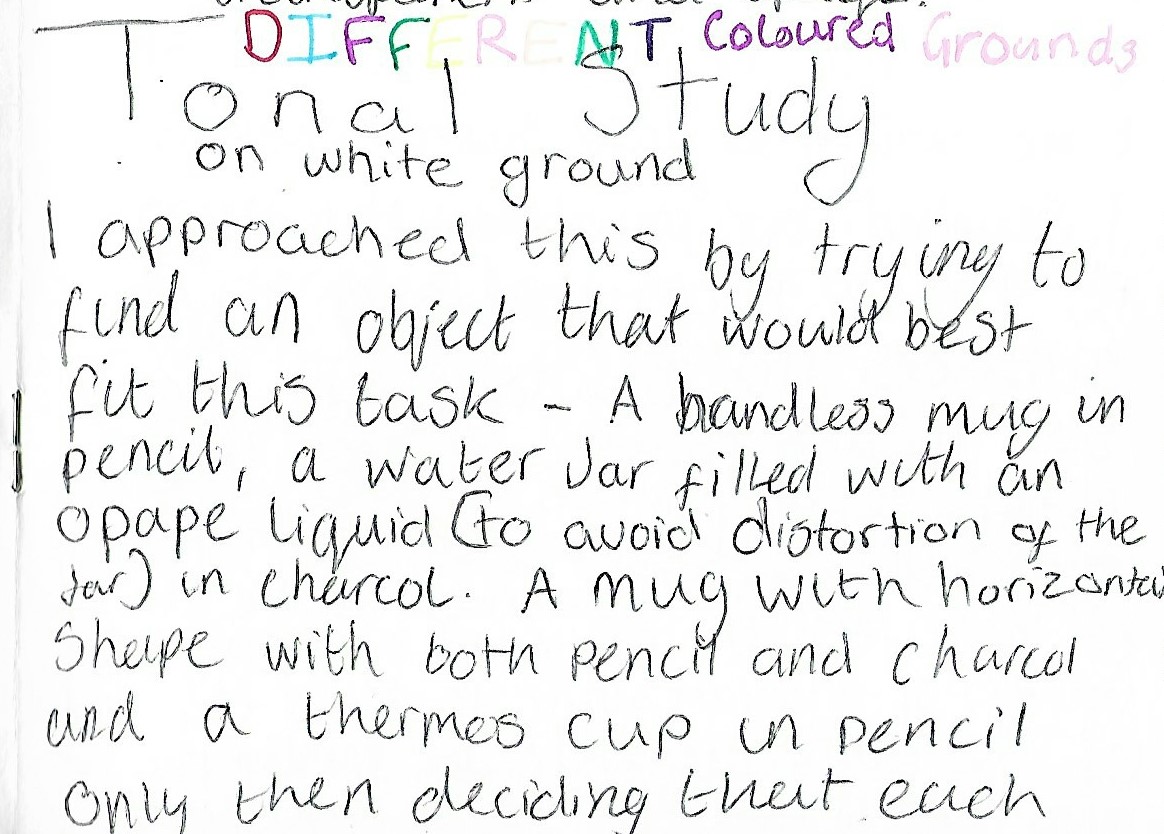 DIFFERENT Coloured Grounds
Tonal Study
on white ground
I approached this by trying to
find an object that would best
fit this task - A handless mug in
pencil, a water Jar filled with an
opape liquid (to avoid distortion of the
Jar) in charcol. A mug with horizontal
Shape with both pencil and charcol
and a thermos cup in pencil
Only then deciding that each